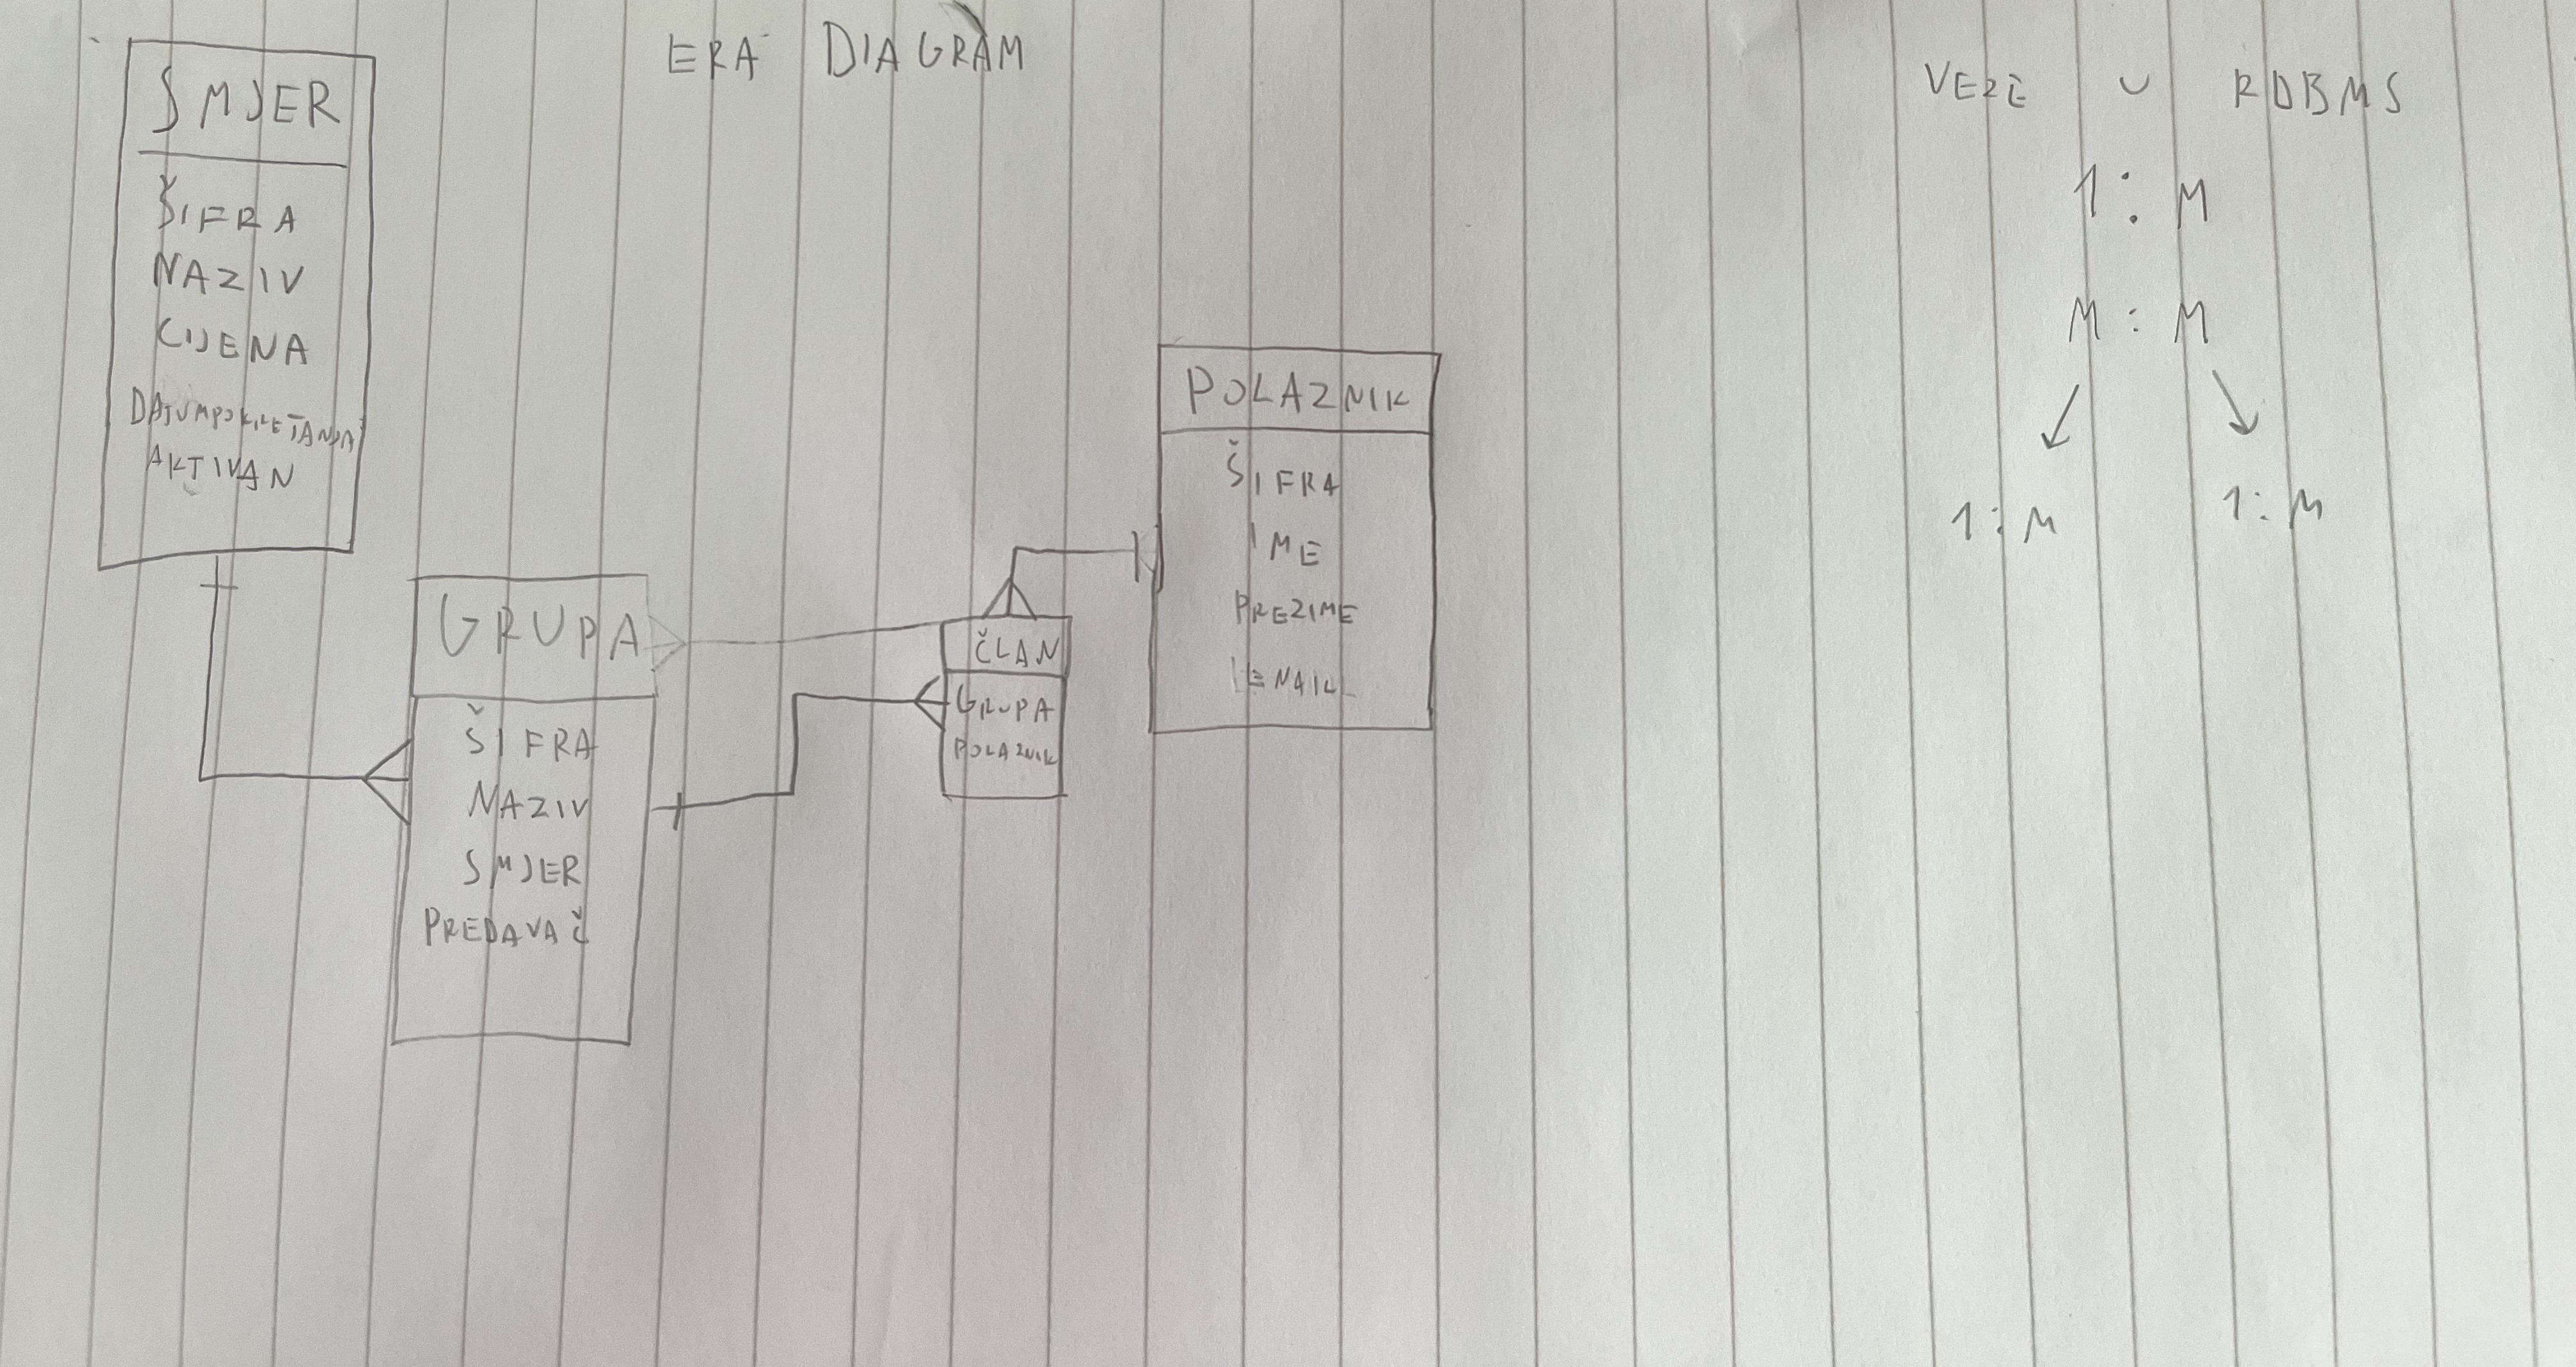 ERA DIAGRAM
SMJER
ŠIFRA
NAZIV
CIJENA
DATUMPOKRETANJA
AKTIVAN
GRUPA
ŠIFRA
NAZIV
SMJER
PREDAVAČ
ČLAN
GRUPA
POLAZNIK
POLAZNIK
ŠIFRA
IME
PREZIME
EMAIL
VEZE U RDBMS
1:M
M:M
1:M 1:M